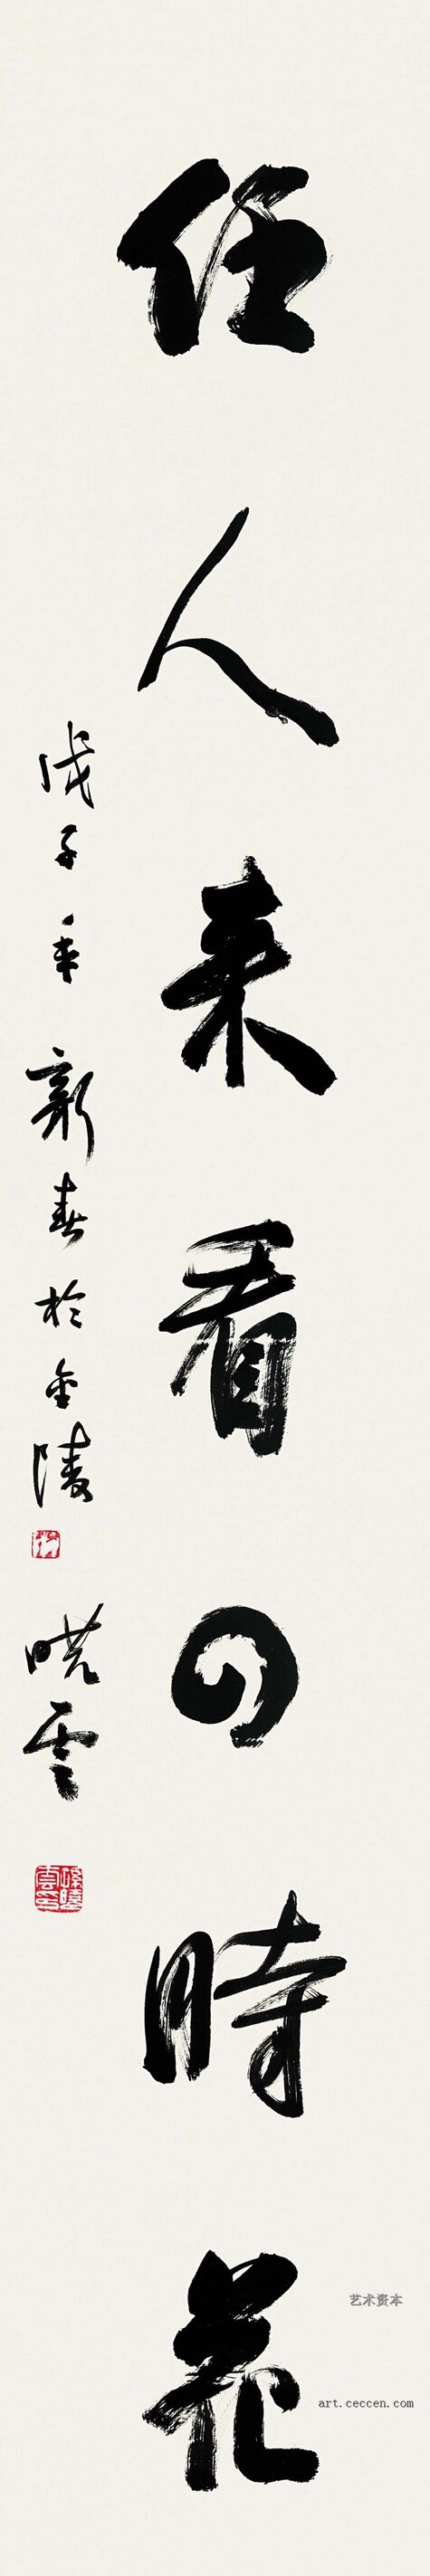 任人来看四時花
戊子年新春於金陵
晓雲
孫曉雲印
艺术资本
art.ceccen.com